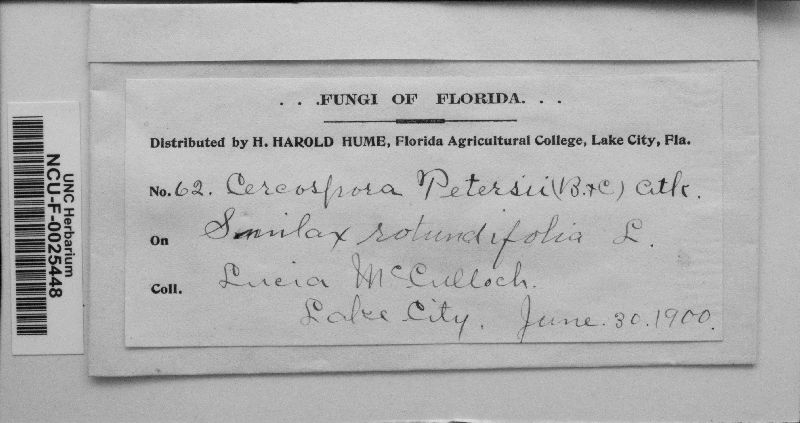 . . .FUNGI OF FLORIDA. . .
Distributed by H. HAROLD HUME, Florida Agricultural College, Lake City, Fla.
No. 62. Cercospora Petersii (B.+C) Atk.
On Smilax rotundifolia L.
Coll. Lucia McCulloch.
Lake City. June. 30. 1900.
UNC Herbarium
NCU-F-0025448